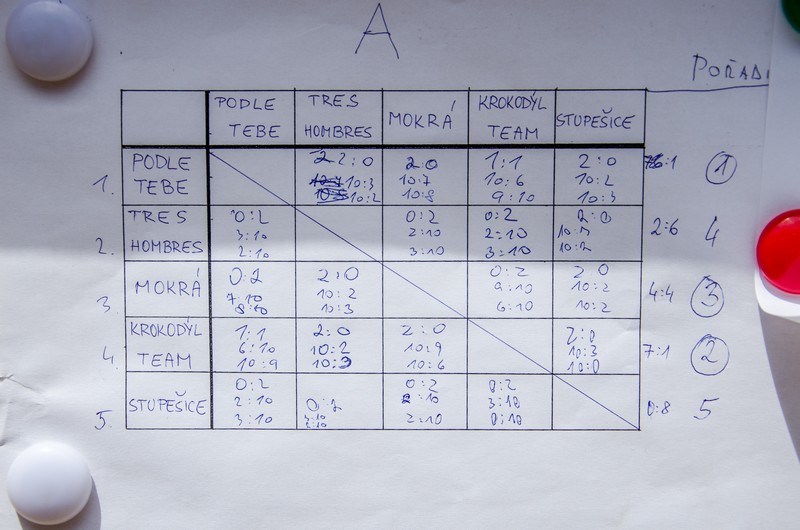 A
POŘAD
PODLE TEBE
TRES HOMBRES
MOKRÁ
KROKODÝL TEAM
STUPEŠICE
1. PODLE TEBE
2:0 1:1 2:0
2:0
10:3 10:7 10:6 10:2
10:2 10:8 9:10 10:3
6:1 1
2. TRES HOMBRES
0:2 0:2 0:2 2:0
3:10 2:10 2:10
2:10 3:10 3:10 10:2
2:6 4
3. MOKRÁ
0:2 2:0 0:2 2:0
7:10 10:2 9:10 10:2
8:10 10:3 6:10 10:2
4:4 3
4. KROKODÝL TEAM
1:1 2:0 2:0 2:0
6:10 10:2 10:9 10:3
10:9 10:3 10:6 10:0
7:1 2
5. STUPEŠICE
0:2 0:2 0:2
2:10 2:10 3:10
3:10 2:10 0:10
0:8 5